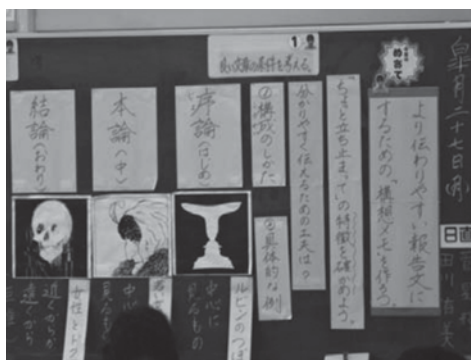 皐月二十七日(月)
日直
めあて
より伝わりやすい報告文に
するための、「構想メモ」を作ろう。
1
良い文章の条件を考える。
「ちょっと立ち止まって」の特徴を確かめよう。
分かりやすく伝えるための工夫は?
①構成のしかた
②具体的な例
序論(はじめ)
本論(中)
結論(おわり)
ルビンのつぼ
中心に
見るもの
中心
見るも
女性とドク
近くから
遠くから